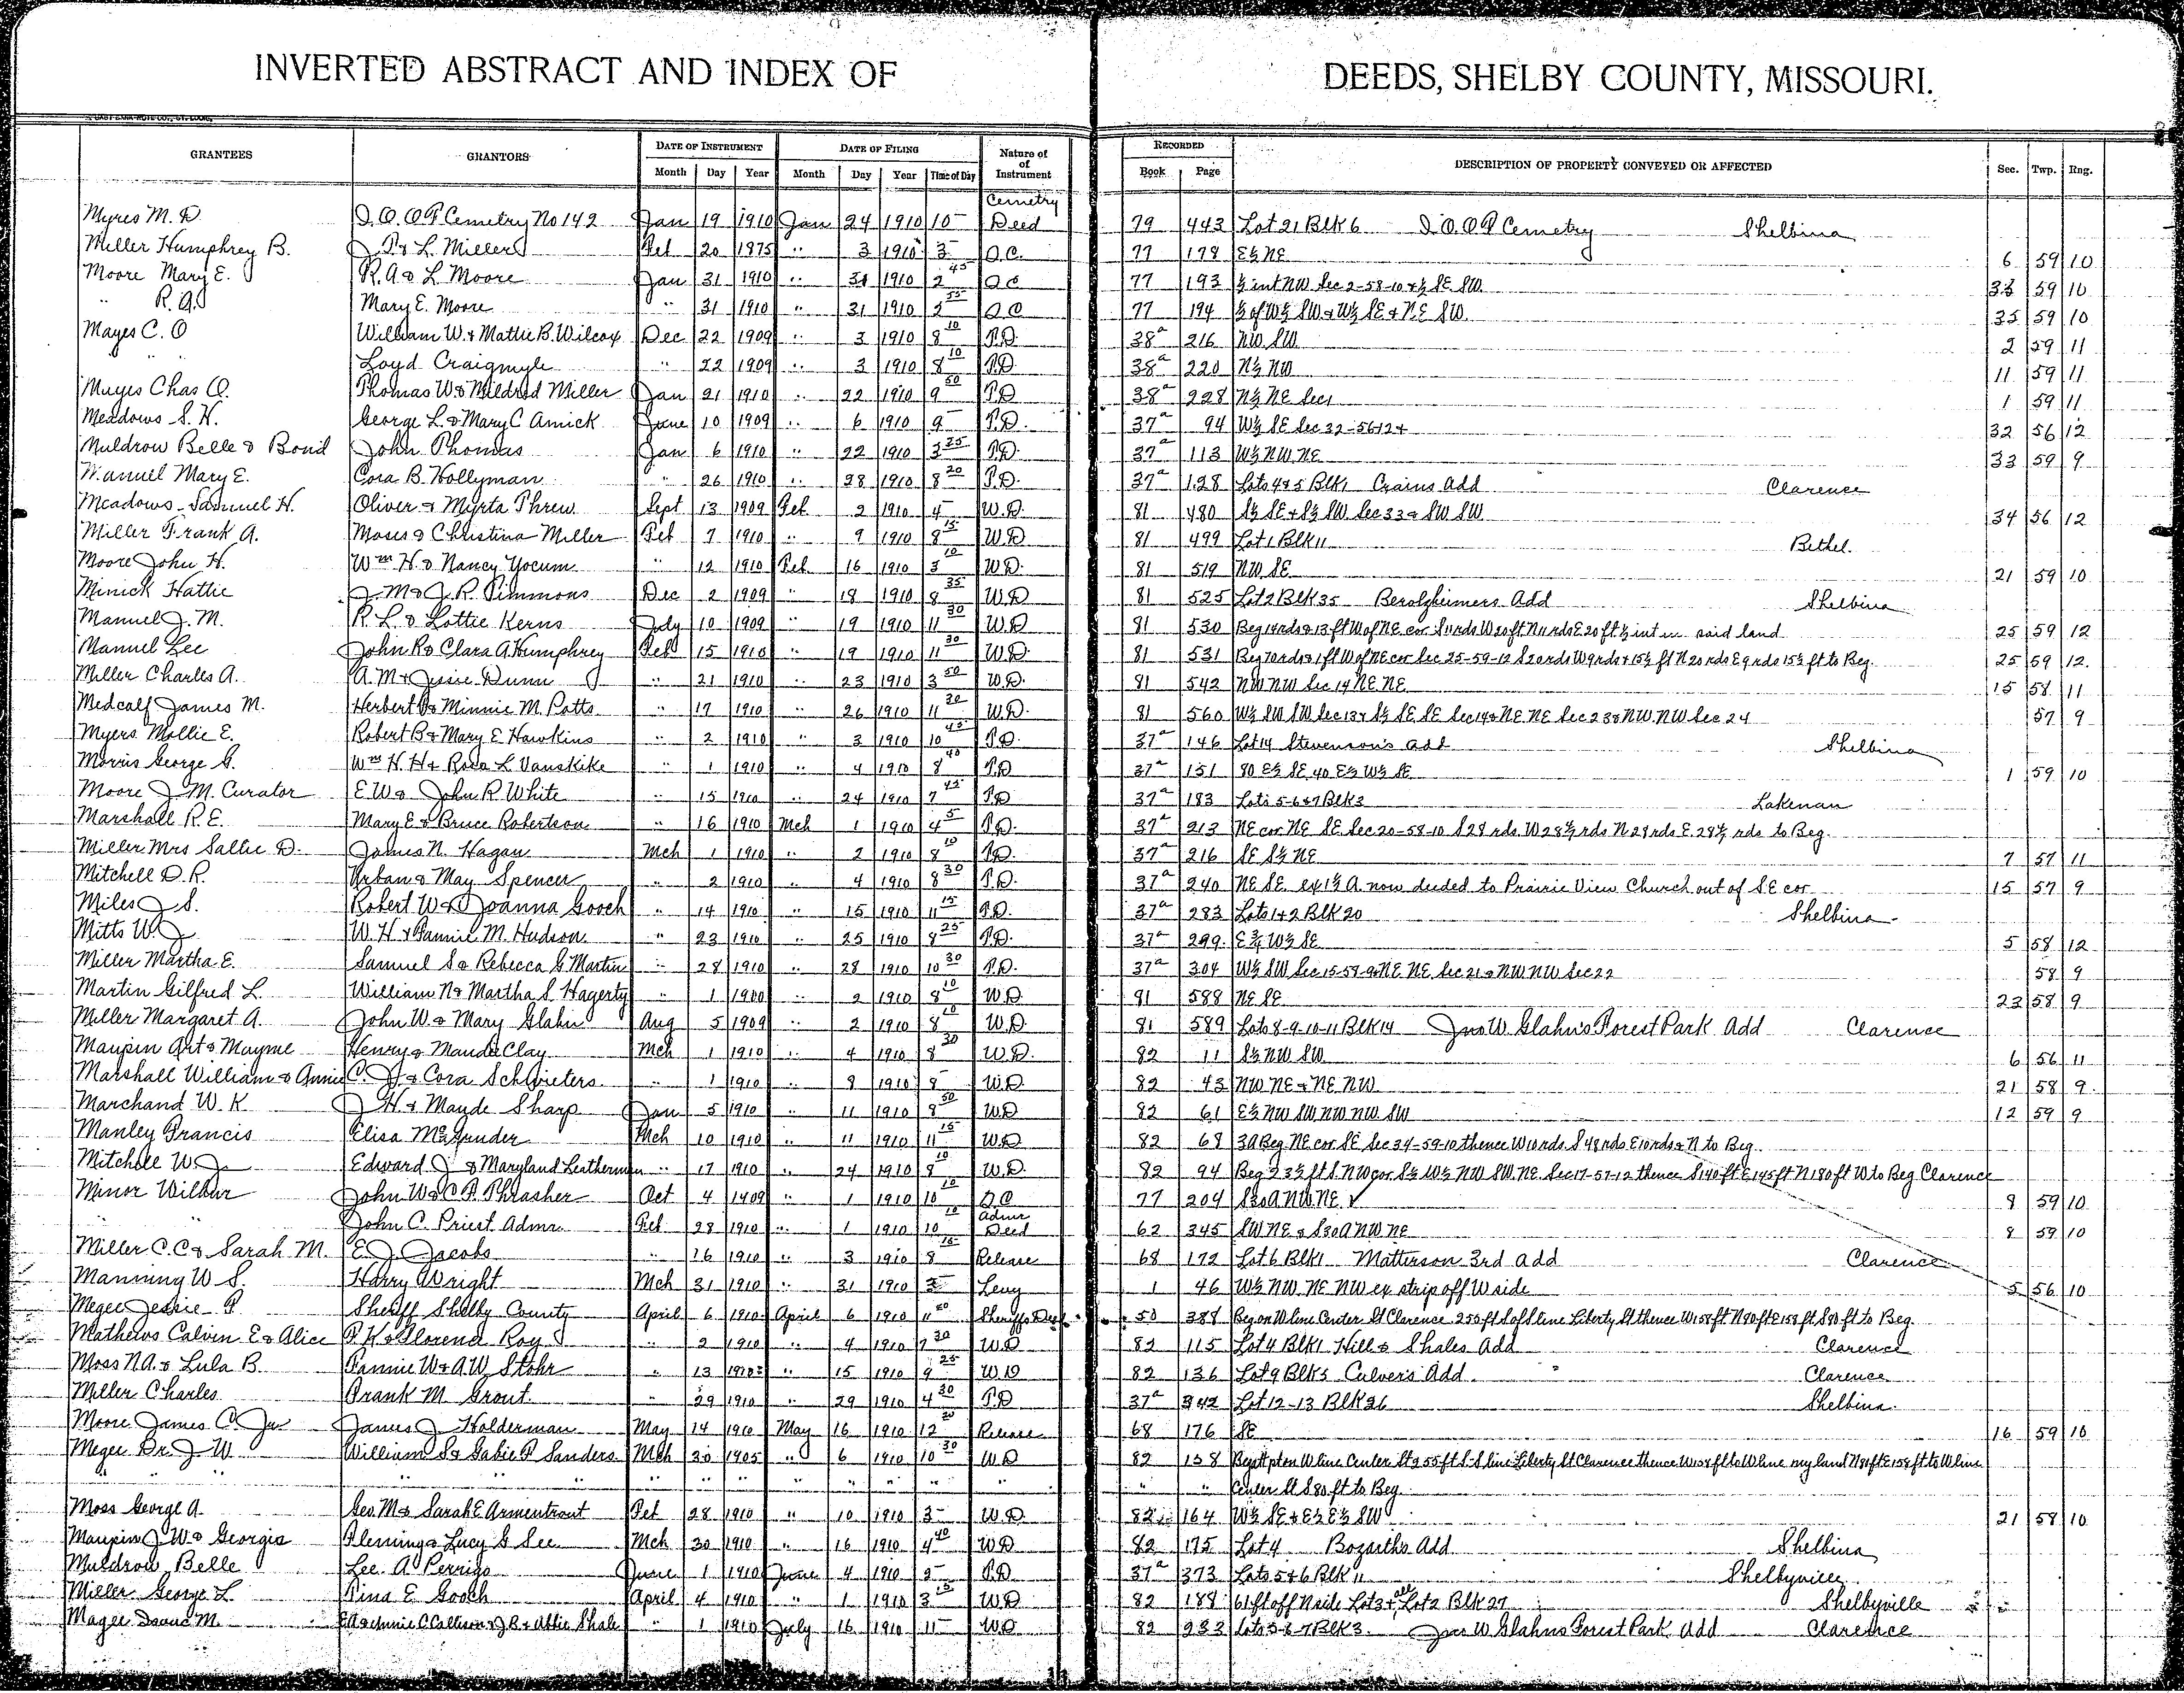 INVERTED ABSTRACT AND INDEX OF DEEDS, SHELBY COUNTY, MISSOURI.
GRANTEES GRANTORS DATE OF INSTRUMENT DATE OF FILING Nature of of Instrument RECORDED DESCRIPTION OF PROPERTY CONVEYED OR AFFECTED Sec. Twp. Rng.
Month Day Year Month Day Year Time of Day Book Page
Myres M. D. I.O.O.F Cemetry No 142 Jan 19 1910 Jan 24 1910 10 Cemetry Deed 79 443 Lot 21 Blk 6 I.O.O.F Cemetry Shelbina
Miller Humphrey B. J. P. & L. Miller Feb 20 1875 " 3 1910 3 Q.C. 77 178 E½ NE 6 59 10
Moore Mary E. R. A. & L Moore Jan 31 1910 " 31 1910 2 45 Q C 77 193 ½ int NW Sec 2-58-10 & ½ SE SW 59 10
" R. A. Mary E. Moore " 31 1910 " 31 1910 2 55 Q C 77 194 ½ of W½ SW & W½ SE & NE SW 35 59 10
Mayes C. O William W. & Mattie B. Wilcox Dec 22 1909 " 3 1910 8 10 T.D. 38a 216 NW SW 2 59 11
" Loyd Craigmyle " 22 1909 " 3 1910 8 10 T.D. 38a 220 N½ NW 11 59 11
Mayes Chas O. Thomas W. & Mildred Miller Jan 21 1910 " 22 1910 9 50 T.D 38a 228 N½ NE Sec 1 1 59 11
Meadows S. H. George L. & Mary C Amick June 10 1909 " 6 1910 9 T.D. 37a 94 W½ SE Sec 32-56-12 32 56 12
Muldrow Belle & Bond John Thomas Jan 6 1910 " 22 1910 3 25 T.D. 37a 113 W½ NW NE 33 59 9
Manuel Mary E. Cora B. Hollyman " 26 1910 " 28 1910 8 20 T.D. 37a 128 Lots 4&5 Blk 1 Crains Add Clarence
Meadows Samuel H. Oliver & Myrta Threw Sept 13 1909 Feb 2 1910 4 W.D. 81 480 S½ SE & S½ SW Sec 33 & SW SW 34 56 12
Miller Frank A. Moses & Christina Miller Feb 7 1910 " 9 1910 8 15 W.D 81 499 Lot 1 Blk 11 Bethel.
Moore John H. Wm. H. & Nancy Yocum " 12 1910 Feb 16 1910 3 10 W.D. 81 519 NW SE 21 59 10
Minick Hattie J. M. & J. R. Timmons Dec 2 1909 " 18 1910 8 35 W.D 81 525 Lot 2 Blk 35 Berolzheimers Add Shelbina
Manuel J. M. R. L. & Lottie Kerns July 10 1909 " 19 1910 11 30 W.D 81 530 Beg 14 rds & 13 ft W of NE cor S 11 rds W 20 ft N 11 rds E 20 ft ½ int in said land 25 59 12
Manuel Lee John R & Clara A Humphrey Feb 15 1910 " 19 1910 11 30 W.D 81 531 Beg 70 rds & 1 ft W of NE cor Sec 25-59-12 S 20 rds W 9 rds & 15½ ft N 20 rds E 9 rds 15½ ft to Beg. 25 59 12.
Miller Charles A. A. M. & Jessie Dunn " 21 1910 " 23 1910 3 50 W.D. 81 542 NW NW Sec 14 NE NE 15 58 11
Medcalf James M. Herbert & Minnie M. Potts " 17 1910 " 26 1910 11 20 W.D. 81 560 W½ SW SW Sec 13 & S½ SE SE Sec 14 & NE NE Sec 23 & NW NW Sec 24 57 9
Myers Mollie E. Robert B & Mary E Hawkins " 2 1910 " 3 1910 10 45 T.D. 37a 146 Lot 14 Stevenson's Add Shelbina
Morris George G. Wm H. H & Rosa L Vanskike " 1 1910 " 4 1910 8 40 T.D 37a 151 80 E½ SE 40 E½ W½ SE 1 59 10
Moore J. M. Curator E W & John R White " 15 1910 " 24 1910 9 45 T.D 37a 183 Lots 5-6&7 Blk 3 Lakenan
Marshall R.E. Mary E & Bruce Robertson " 16 1910 Mch 1 1910 4 5 T.D. 37a 213 NE cor NE SE Sec 20-58-10 S 28 rds W 28½ rds N 28 rds E. 28½ rds to Beg.
Miller Mrs Sallie D. James N. Hagan Mch 1 1910 " 2 1910 8 10 T.D. 37a 216 SE S½ NE 7 57 11
Mitchell D.R. Urban & May Spencer " 2 1910 " 4 1910 8 30 T.D. 37a 240 NE SE ex 1½ A. now deeded to Prairie View Church out of SE cor 15 57 9
Miles J S. Robert W & Joanna Gooch " 14 1910 " 15 1910 11 15 T.D. 37a 283 Lots 1&2 Blk 20 Shelbina
Mitts W. J W. H & Fannie M. Hudson " 23 1910 " 25 1910 8 25 T.D. 37a 299. W½ SE 5 58 12
Miller Martha E. Samuel S & Rebecca G Martin " 28 1910 " 28 1910 10 30 T.D. 37a 304 W½ SW Sec 15-58-9 & NE NE Sec 21 & NW NW Sec 22 58 9
Martin Gilfred L. William N & Martha S. Hagerty " 1 1910 " 2 1910 8 10 W D 81 588 NE SE 23 58 9
Miller Margaret A. John W & Mary Glahn Aug 5 1909 " 2 1910 8 10 W.D 81 589 Lots 8-9-10-11 Blk 14 Jno W. Glahn's Forest Park Add Clarence
Maupin Art & Mayme Henry & Manda Clay Mch 1 1910 " 4 1910 8 30 W.D. 82 11 S½ NW SW 6 56 11
Marshall William & Annie C. J. & Cora Schwieters " 1 1910 " 8 1910 8 W.D. 82 43 NW NE & NE NW 21 58 9.
Marchand W. K J H & Mayde Sharp Jan 5 1910 " 11 1910 8 50 W.D 82 61 E½ NW SW NW NW SW 12 59 9
Manley Francis Elisa McGruder Mch 10 1910 " 11 1910 11 15 W.D 82 68 3A Beg NE cor SE Sec 34-59-10 thence W 10 rds S 48 rds E 10 rds & N to Beg.
Mitchell W. J Edward J & Maryland Leatherman " 17 1910 " 24 1910 8 10 W.D 82 94 Beg 233½ ft S. NW cor S½ W½ NW SW NE Sec 17-57-12 thence S 140 ft E 145 ft N 180 ft W to Beg Clarence
Minor Wilbur John W & C. P. Thrasher Oct 4 1909 " 1 1910 10 10 Q.C 77 204 S 30 A NW NE 8 59 10
" " John C. Priest Admr. Feb 28 1910 " 1 1910 10 10 Admr Deed 62 345 SW NE & S 30 A NW NE 8 59 10
Miller C.C & Sarah M. E. J. Jacobs " 16 1910 " 3 1910 8 15 Release 68 172 Lot 6 Blk 1 Matterson 3rd Add Clarence
Manning W S. Harry Wright Mch 31 1910 " 31 1910 3 Levy 1 46 W½ NW NE NW ex strip off W side 5 56 10
Megee Jessie P. Sheriff Shelby County April 6 1910 April 6 1910 11 Sheriffs Deed 50 388 Beg on W line Center St Clarence 250 ft S of S line Liberty St thence W 158 ft N 80 ft E 158 ft S 80 ft to Beg.
Mathews Calvin E & Alice P. K & Florence Roy " 2 1910 " 4 1910 9 30 W D 82 115 Lot 4 Blk 1 Hill & Shales Add Clarence
Moss N.A. & Lula B. Fannie W & A.W. Stohr " 13 1910 " 15 1910 9 25 W D 82 136 Lot 9 Blk 5 Culver's Add Clarence
Miller Charles Frank M Grout " 29 1910 " 29 1910 4 30 T.D 37a 342 Lot 12-13 Blk 26 Shelbina
Moore James C. Jr James J Holderman May 14 1910 May 16 1910 12 20 Release 68 176 SE 16 59 10
Megee Dr. J W William S & Sabie P Sanders Mch 30 1905 " 6 1910 10 30 W D 82 158 Beg at pt on W line Center St 255 ft S-S line Liberty St Clarence thence W 158 ft to W line my land N 81 ft E 158 ft to W line
" " " " " " " " " " " " " " Center St S 80 ft to Beg.
Moss George A. Geo M & Sarah E Armentrout Feb 28 1910 " 10 1910 3 W.D. 82 164 W½ SE & E½ E½ SW 21 58 10
Maupin J W & Georgia Fleming & Lucy G See Mch 30 1910 " 16 1910 4 40 W D 82 175 Lot 4 Bozarths Add Shelbina
Muldrow Belle Lee. A Perrigo June 1 1910 June 4 1910 T.D 37a 373 Lots 5&6 Blk 11 Shelbyville
Miller George L Pina E Gooch April 4 1910 " 1 1910 3 15 W D 82 188 61 ft off N side Lot 3 & all Lot 2 Blk 27 Shelbyville
Magee M. C Collison & J B & Abbie Shale " 1 1910 July 16 1910 11 W D 82 233 Lots 5-6-7 Blk 3 Jno W Glahns Forest Park Add Clarence